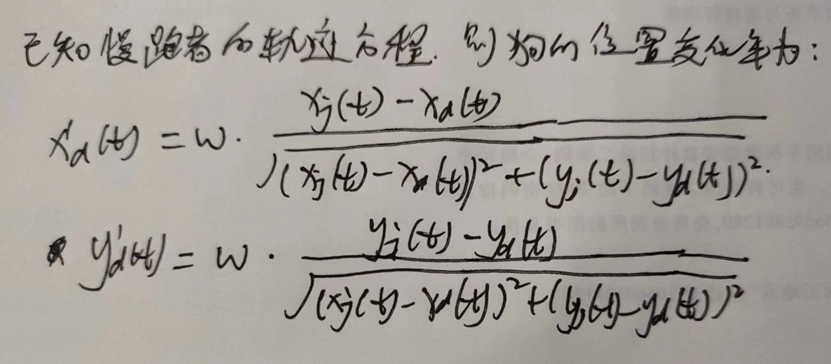 已知慢跑者的轨迹方程. 则狗的位置变化率为:
x'd(t) = w · (xj(t) - xd(t)) / √((xj(t) - xd(t))² + (yj(t) - yd(t))².
y'd(t) = w · (yj(t) - yd(t)) / √((xj(t) - xd(t))² + (yj(t) - yd(t))²